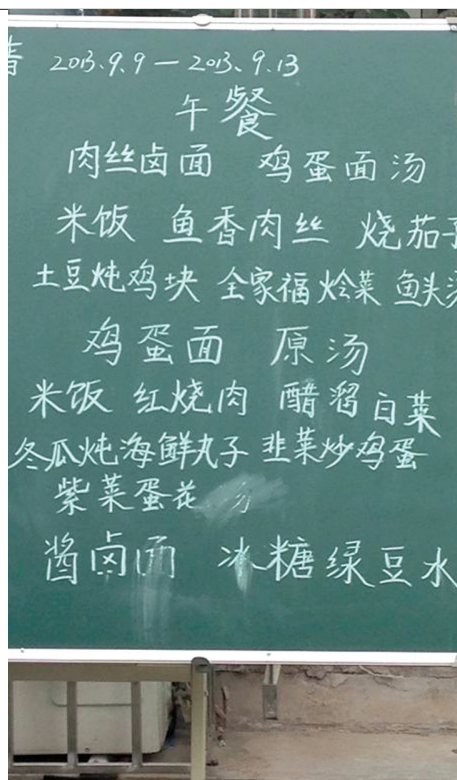 2013.9.9—2013.9.13
午餐
肉丝卤面 鸡蛋面汤
米饭 鱼香肉丝 烧茄子
土豆炖鸡块 全家福 烩菜 鱼头汤
鸡蛋面 原汤
米饭 红烧肉 醋溜白菜
冬瓜炖海鲜丸子 韭菜炒鸡蛋
紫菜蛋花
酱卤面 冰糖绿豆水